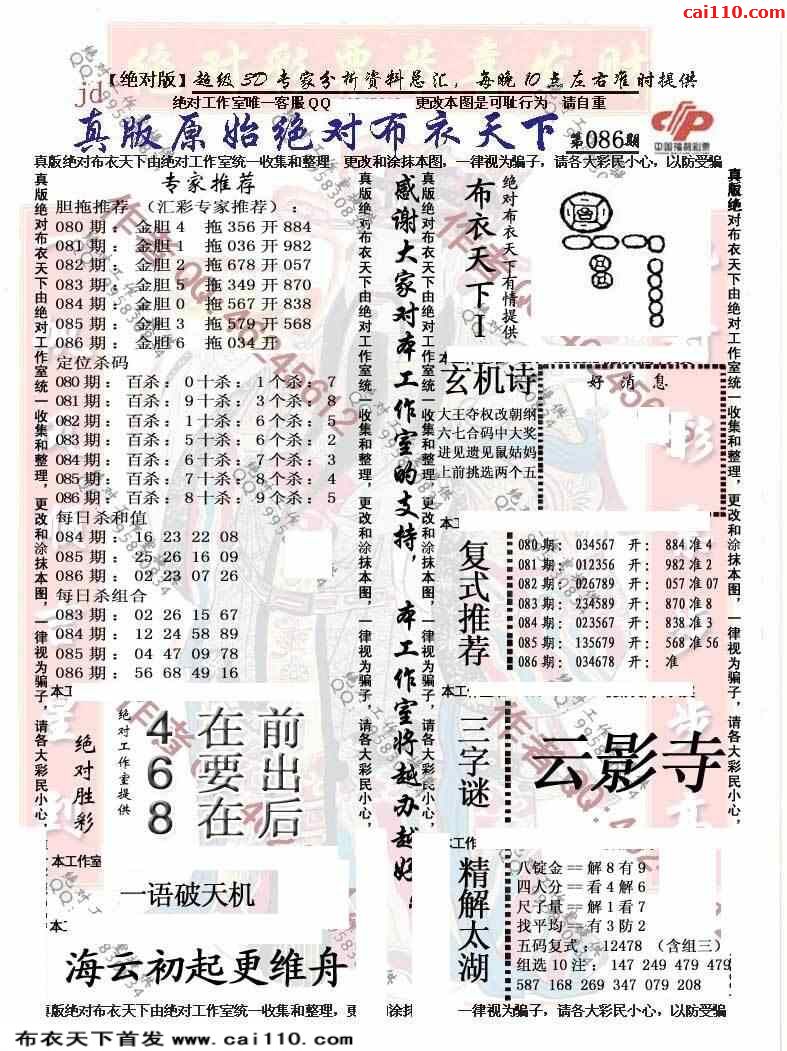 cai110.com
【绝对版】超级3D专家分析资料总汇，每晚10点左右准时提供
jd
绝对工作室唯一客服QQ 更改本图是可耻行为 请自重
真版原始绝对布衣天下 第086期
中国福利彩票
真版绝对布衣天下由绝对工作室统一收集和整理，更改和涂抹本图，一律视为骗子，请各大彩民小心，以防受骗
专家推荐
胆拖推荐（汇彩专家推荐）：
080期：金胆4 拖356开884
081期：金胆1 拖036开982
082期：金胆2 拖678开057
083期：金胆5 拖349开870
084期：金胆0 拖567开838
085期：金胆3 拖579开568
086期：金胆6 拖034开
定位杀码
080期：百杀：0十杀：1个杀：7
081期：百杀：9十杀：3个杀：8
082期：百杀：1十杀：6个杀：5
083期：百杀：5十杀：6个杀：2
084期：百杀：6十杀：7个杀：3
085期：百杀：7十杀：8个杀：4
086期：百杀：8十杀：9个杀：5
每日杀和值
084期：16 23 22 08
085期：25 26 16 09
086期：02 23 07 26
每日杀组合
083期：02 26 15 67
084期：12 24 58 89
085期：04 47 09 78
086期：56 68 49 16
真版绝对布衣天下由绝对工作室统一收集和整理，更改和涂抹本图，一律视为骗子，请各大彩民小心，
感谢大家对本工作室的支持，本工作室将越办越好
真版绝对布衣天下由绝对工作室统一收集和整理，更改和涂抹本图，一律视为骗子，请各大彩民小心，
布衣天下I
绝对布衣天下有情提供
玄机诗
大王夺权改朝纲
六七合码中大奖
进见遗见鼠姑妈
上前挑选两个五
好消息
复式推荐
080期：034567 开：884准4
081期：012356 开：982准2
082期：026789 开：057准07
083期：234589 开：870准8
084期：023567 开：838准3
085期：135679 开：568准56
086期：034678 开：准
绝对胜彩
绝对工作室提供
4在前
6要出
8在后
三字谜
云影寺
本工作室
一语破天机
海云初起更维舟
精解太湖
八锭金==解8有9
四人分==看4解6
尺子量==解1看7
找平均==有3防2
五码复式：12478（含组三）
组选10注：147 249 479 479
587 168 269 347 079 208
真版绝对布衣天下由绝对工作室统一收集和整理，更改和涂抹本图，一律视为骗子，请各大彩民小心，
真版绝对布衣天下由绝对工作室统一收集和整理，更 和涂抹 一律视为骗子，请各大彩民小心，以防受骗
布衣天下首发 www.cai110.com